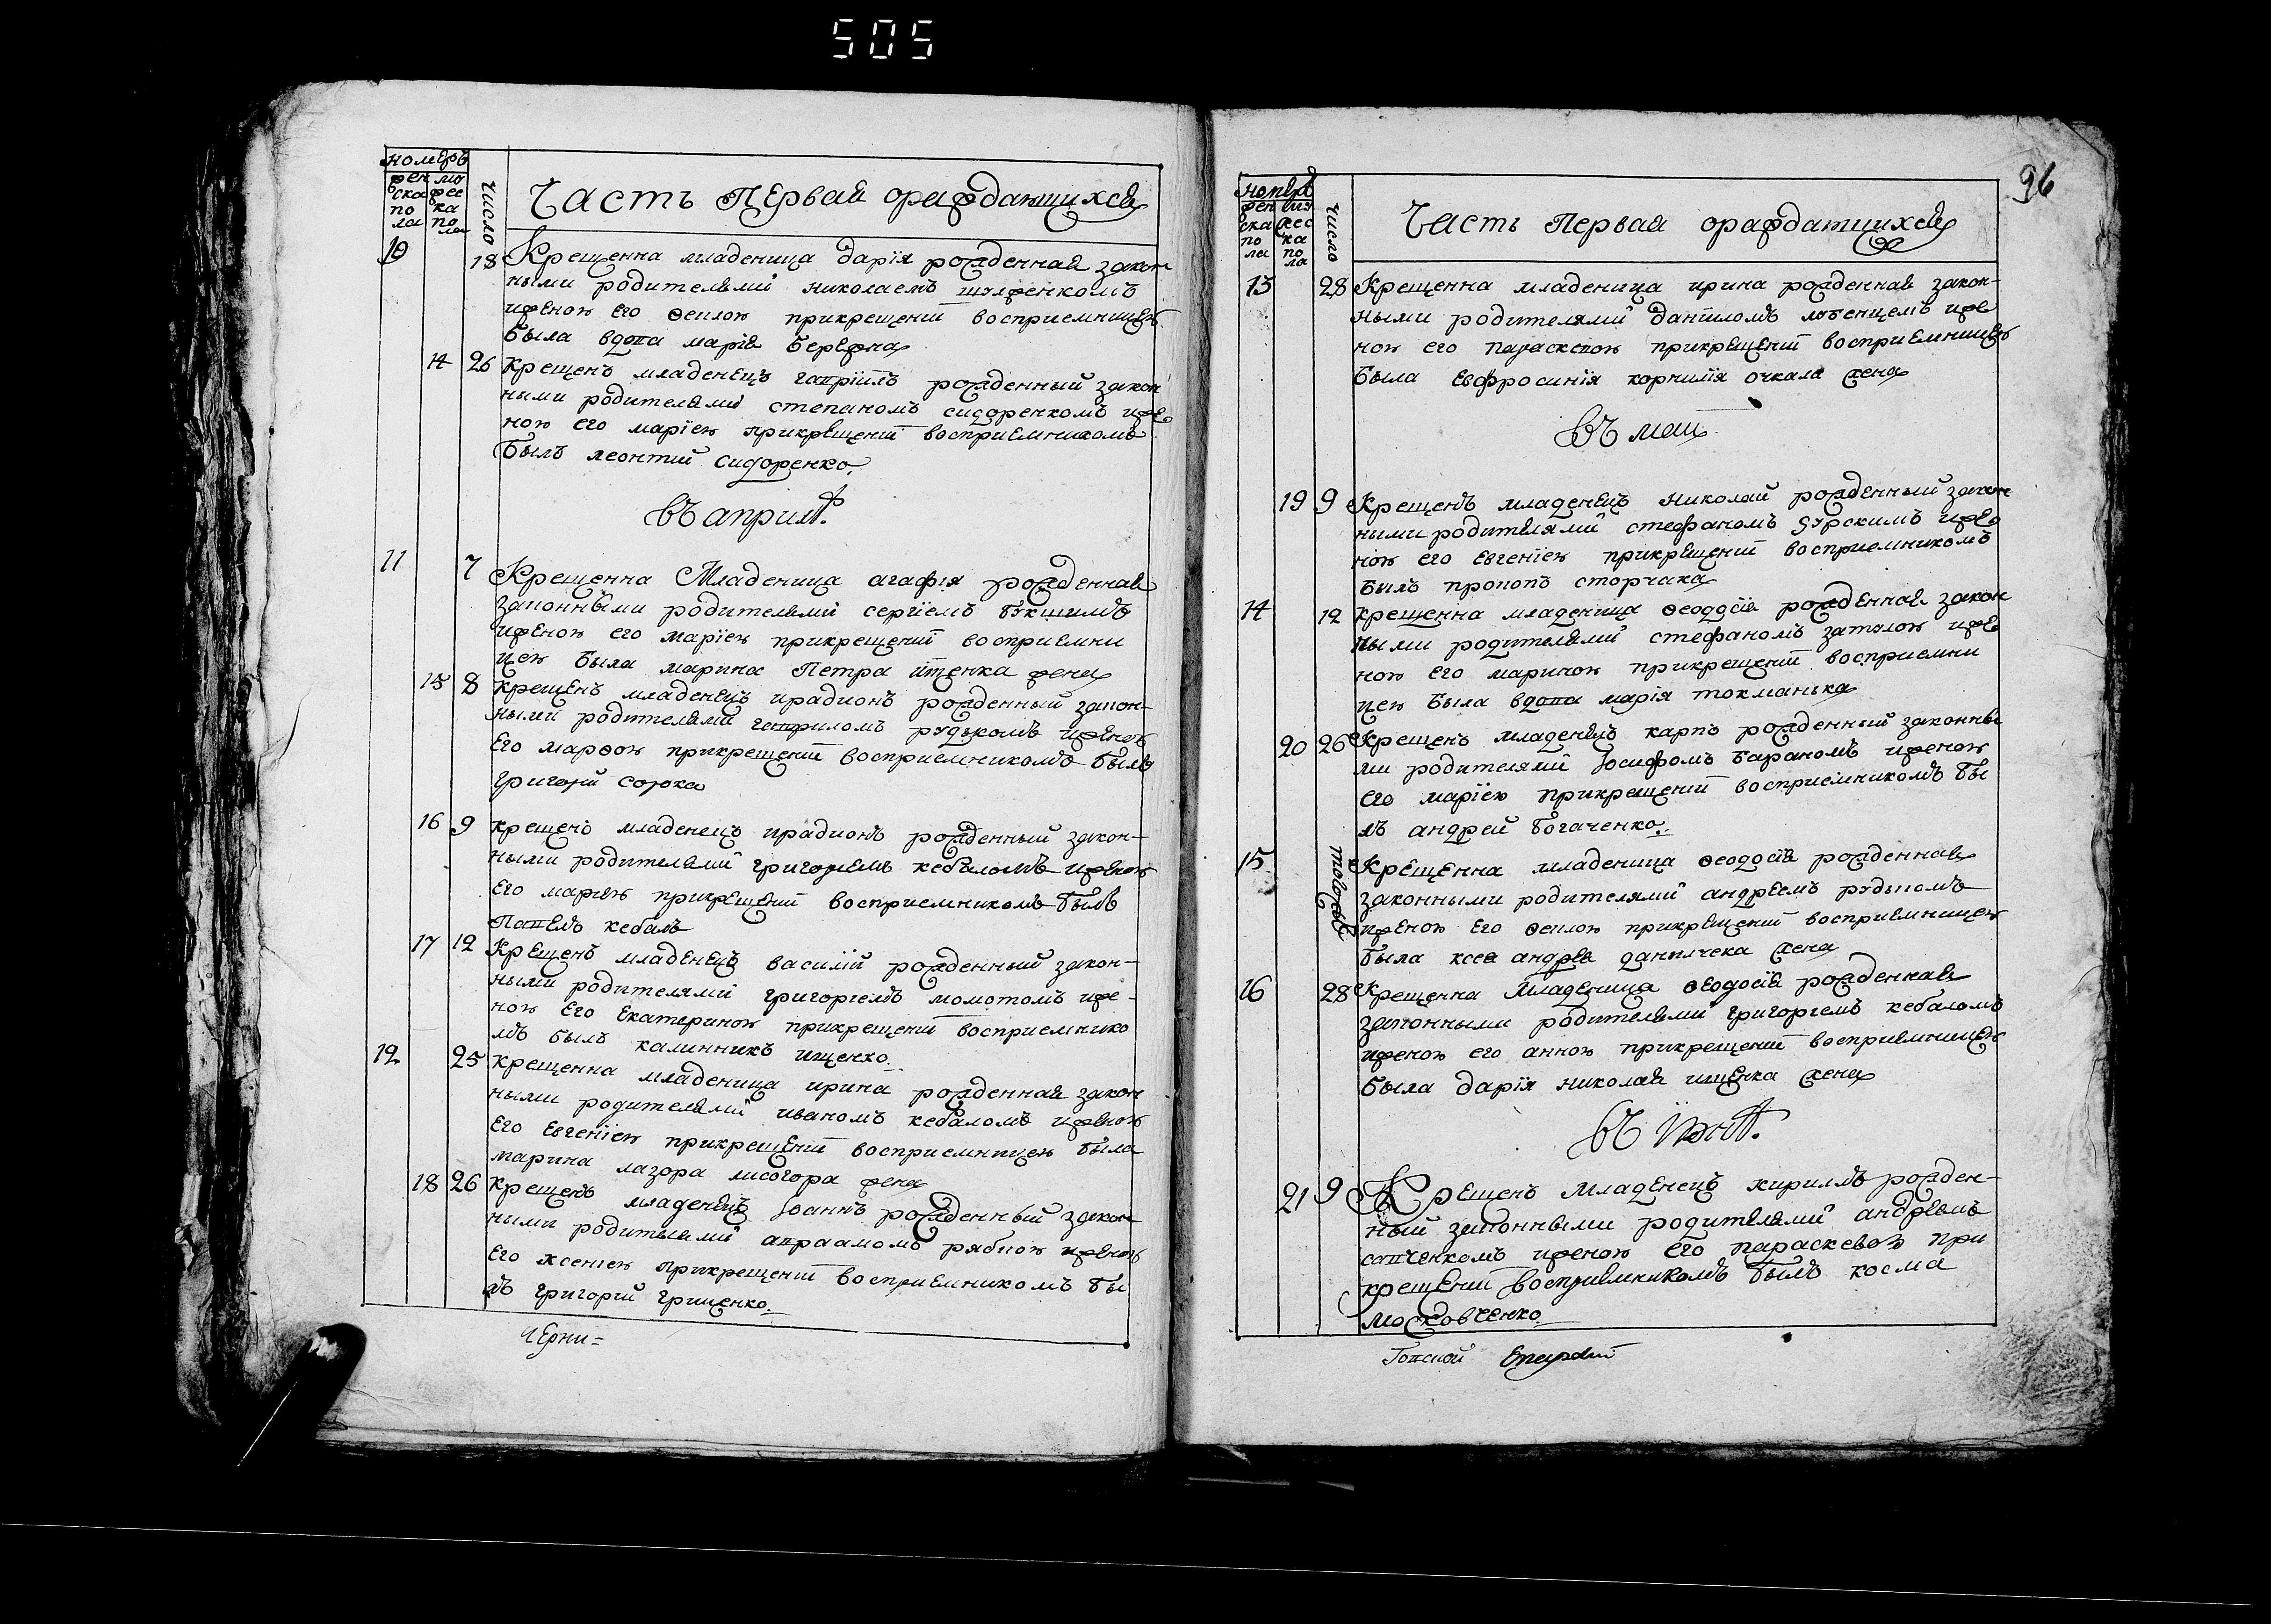 505
номеръ
жен му
ска жес
по ка
ла по
ла
число
Часть Первая ораждающихся
10 18 Крещенна младеница дарїя рожденная закон
ными родителями николаемъ шулженкомъ
иженою его ѳеклою прикрещенїи восприемницею
была вдова марїя Бережна
14 26 крещенъ младенецъ гаврїилъ рожденный закон
ными родителями степаномъ сидоренкомъ иже
ною его марїею прикрещенїи восприемникомъ
былъ леонтий сидоренко
въ априлѣ
11 7 Крещенна Младеница агафїя рожденная
законными родителями сергїемъ букшимъ
иженою его марїею прикрещенїи восприемни
цею была марина Петра ищенка жена
15 8 крещенъ младенецъ ирадионъ рожденный закон-
ными родителями гавриломъ рудькомъ иженою
его марѳою прикрещенїи восприемникомъ былъ
григорїй сорока
16 9 крещенъ младенецъ ирадионъ рожденный закон-
ными родителями григориемъ кебаломъ иженою
его мариею прикрещенїи восприемникомъ былъ
Павелъ кебалъ
17 12 Крещенъ младенецъ василїй рожденный закон-
ными родителями григориемъ момотомъ иже-
ною его Екатериною прикрещенїи восприемнико
мъ былъ калинникъ ищенко
12 25 крещенна младеница ирина рожденная закон
ными родителями иваномъ кебаломъ иженою
его Евгенїею прикрещенїи восприемницею была
марина лазора лисогора жена
18 26 крещенъ младенецъ Іоаннъ рожденный закон
ными родителями авраамомъ рябкою иженою
его ксениею прикрещенїи восприемникомъ бы
лъ григорїй грищенко
Черни=
96
номеръ
жен муж
ска жес
по ка
ла по
ла
число
Часть Первая ораждающихся
13 28 Крещенна младеница ирина рожденная закон-
ными родителями данїиломъ лубенцемъ иже
ною его параскевою прикрещенїи восприемницею
была Евфросинїя корнилїя очкала жена
въ маи
19 9 Крещенъ младенецъ николай рожденный закон
ными родителями стефаномъ гурскимъ иже
ною его евгенїею прикрещенїи восприемникомъ
былъ прокопъ сторчака
14 12 крещенна младеница ѳеодосїя рожденная закон
ными родителями стефаномъ затулою иже
ною его мариною прикрещенїи восприемни
цею была вдова марїя токманька
20 26 Крещенъ младенецъ карпъ рожденный законны
ми родителями Іосифомъ бараномъ иженою
его марїею прикрещенїи восприемникомъ бы
лъ андрей богаченко
15 тогожъ Крещенна младеница ѳеодосїя рожденная
законными родителями андреемъ рудькомъ
иженою его ѳеклою прикрещенїи восприемницею
была ксеѳ андрея данильчека жена
16 28 крещенна Младеница ѳеодосїя рожденная
законными родителями григориемъ кебаломъ
иженою его анною прикрещенїи восприемницею
была дарїя николая ищенка жена
въ їюнѣ
21 9 Крещенъ Младенецъ кириллъ рожден-
ный законными родителями андреемъ
савченкомъ иженою его параскевою при
крещенїи восприемникомъ былъ косма
московченко
Говской Епархїи